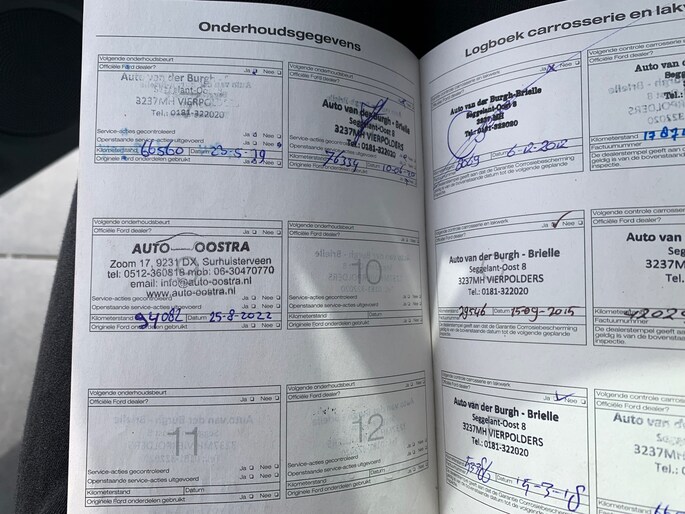 Onderhoudsgegevens
Volgende onderhoudsbeurt
Officiële Ford dealer? Ja Nee
Auto van der Burgh
Seggelant-Oo
3237MH VIERPOL
Tel.: 0181-322020
Service-acties gecontroleerd Ja Nee
Openstaande service-acties uitgevoerd Ja Nee
Kilometerstand 66560 Datum 23-5-19
Originele Ford onderdelen gebruikt Ja Nee
Volgende onderhoudsbeurt
Officiële Ford dealer?
Auto van der Burgh-Brielle
Seggelant-Oost 8
3237MH VIERPOLDERS
Tel.: 0181-322020
76339
Volgende onderhoudsbeurt
Officiële Ford dealer? Ja Nee
AUTO OOSTRA
Zoom 17, 9231 DX, Surhuisterveen
tel: 0512-360818 mob: 06-30470770
email: info@auto-oostra.nl
www.auto-oostra.nl
Service-acties gecontroleerd Ja Nee
Openstaande service-acties uitgevoerd Ja Nee
Kilometerstand 94082 Datum 25-8-2022
Originele Ford onderdelen gebruikt Ja Nee
Volgende onderhoudsbeurt
Officiële Ford dealer? Ja Nee
10
Service-acties gecontroleerd Ja Nee
Openstaande service-acties uitgevoerd Ja Nee
Kilometerstand Datum
Originele Ford onderdelen gebruikt Ja Nee
Volgende onderhoudsbeurt
Officiële Ford dealer? Ja Nee
11
Service-acties gecontroleerd Ja Nee
Openstaande service-acties uitgevoerd Ja Nee
Kilometerstand Datum
Originele Ford onderdelen gebruikt Ja Nee
Volgende onderhoudsbeurt
Officiële Ford dealer? Ja Nee
12
Service-acties gecontroleerd Ja Nee
Openstaande service-acties uitgevoerd Ja Nee
Kilometerstand Datum
Originele Ford onderdelen gebruikt Ja Nee
Logboek carrosserie en lakw
Volgende controle carrosserie en lakwerk
Officiële Ford dealer? Ja Nee
Auto van der Burgh-Brielle
Seggelant-Oost 8
Tel.: 0181-322020
6-12-2012
De dealerstempel geeft aan dat de Garantie Corrosiebescherming
geldig is van de bovenstaande datum tot de volgende geplande
inspectie.
Volgende controle carrosserie
Officiële Ford dealer?
Auto van d
Segge
3237MH
Tel.:
Kilometerstand
Factuurnummer
De dealerstempel geeft aan
geldig is van de bovenstaand
inspectie.
Volgende controle carrosserie en lakwerk
Officiële Ford dealer? Ja Nee
Auto van der Burgh - Brielle
Seggelant-Oost 8
3237MH VIERPOLDERS
Tel.: 0181-322020
29546 Datum 15-09-2015
De dealerstempel geeft aan dat de Garantie Corrosiebescherming
geldig is van de bovenstaande datum tot de volgende geplande
inspectie.
Volgende controle carrosserie
Officiële Ford dealer?
Auto van d
Segge
3237MH
Tel.:
Kilometerstand
Factuurnummer
De dealerstempel geeft aan
geldig is van de bovenstaand
inspectie.
Volgende controle carrosserie en lakwerk
Officiële Ford dealer? Ja Nee
Auto van der Burgh - Brielle
Seggelant-Oost 8
3237MH VIERPOLDERS
Tel.: 0181-322020
15-3-18
Volgende controle carros
Officiële Ford dealer?
Auto van
Seg
3237M
Tel.:
Kilometerstand